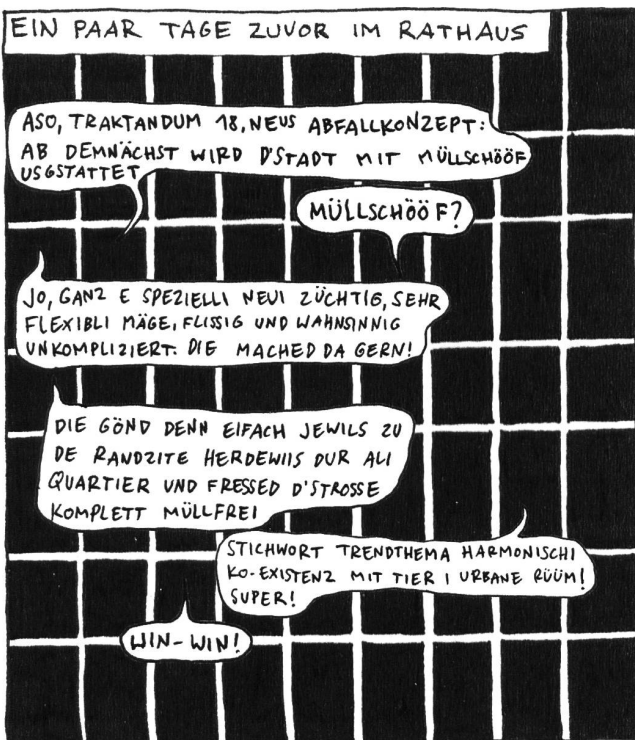 EIN PAAR TAGE ZUVOR IM RATHAUS
ASO, TRAKTANDUM 18, NEUS ABFALLKONZEPT:
AB DEMNÄCHST WIRD D'STADT MIT MÜLLSCHÖÖF
USGSTATTET
MÜLLSCHÖÖF?
JO, GANZ E SPEZIELLI NEUI ZÜCHTIG, SEHR
FLEXIBLI MÄGE, FLISSIG UND WAHNSINNIG
UNKOMPLIZIERT. DIE MACHED DA GERN!
DIE GÖND DENN EIFACH JEWILS ZU
DE RANDZITE HERDEWIIS DUR ALI
QUARTIER UND FRESSED D'STROSSE
KOMPLETT MÜLLFREI
STICHWORT TRENDTHEMA HARMONISCHI
KO-EXISTENZ MIT TIER I URBANE RÜÜM!
SUPER!
WIN-WIN!